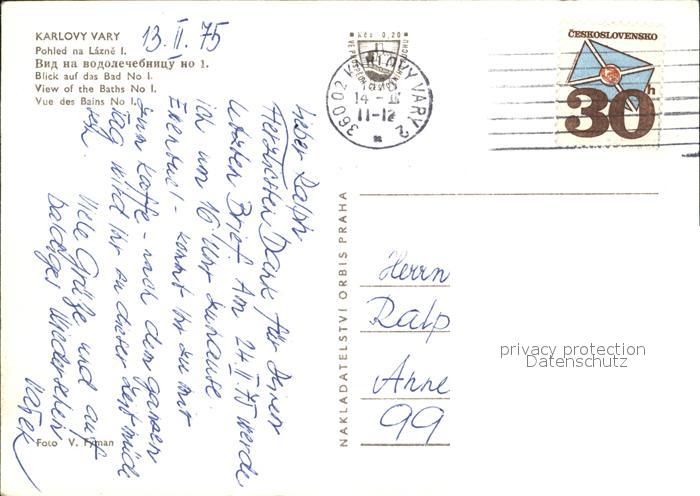 KARLOVY VARY
Pohled na Lázně I.
Вид на водолечебницу но 1.
Blick auf das Bad No I.
View of the Baths No I.
Vue des Bains No I.
13.II.75
Lieber Ralph
Herzlichen Dank für Deinen
letzten Brief. Am 24.II.75 werde
ich um 16 Uhr zuhause.
Eventuel - kommt ihr zu mir
zum Kaffe - nach dem ganzen
Tag wird ihr zu dieser Zeit müde
sein.
Viele Grüße und auf
baldiges Wiedersehen
Vašek
Foto V. Fyman
NAKLADATELSTVÍ ORBIS PRAHA
Kčs 0,20
360 02 KARLOVY VARY 2
14.-II
11-12
ČESKOSLOVENSKO
30h
Herrn
Ralp
Anne
99
privacy protection
Datenschutz